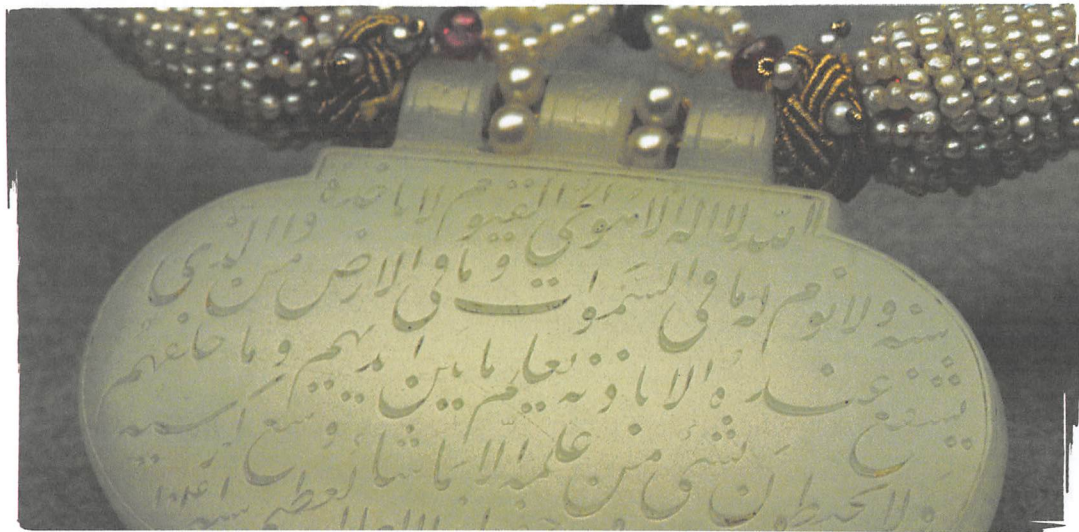 الله لا اله الا هو الحي القيوم لا تاخذه
سنه ولا نوم له ما في السموات وما في الارض من ذا الذي
يشفع عنده الا باذنه يعلم ما بين ايديهم وما خلفهم
ولا يحيطون بشئ من علمه الا بما شاء وسع كرسيه